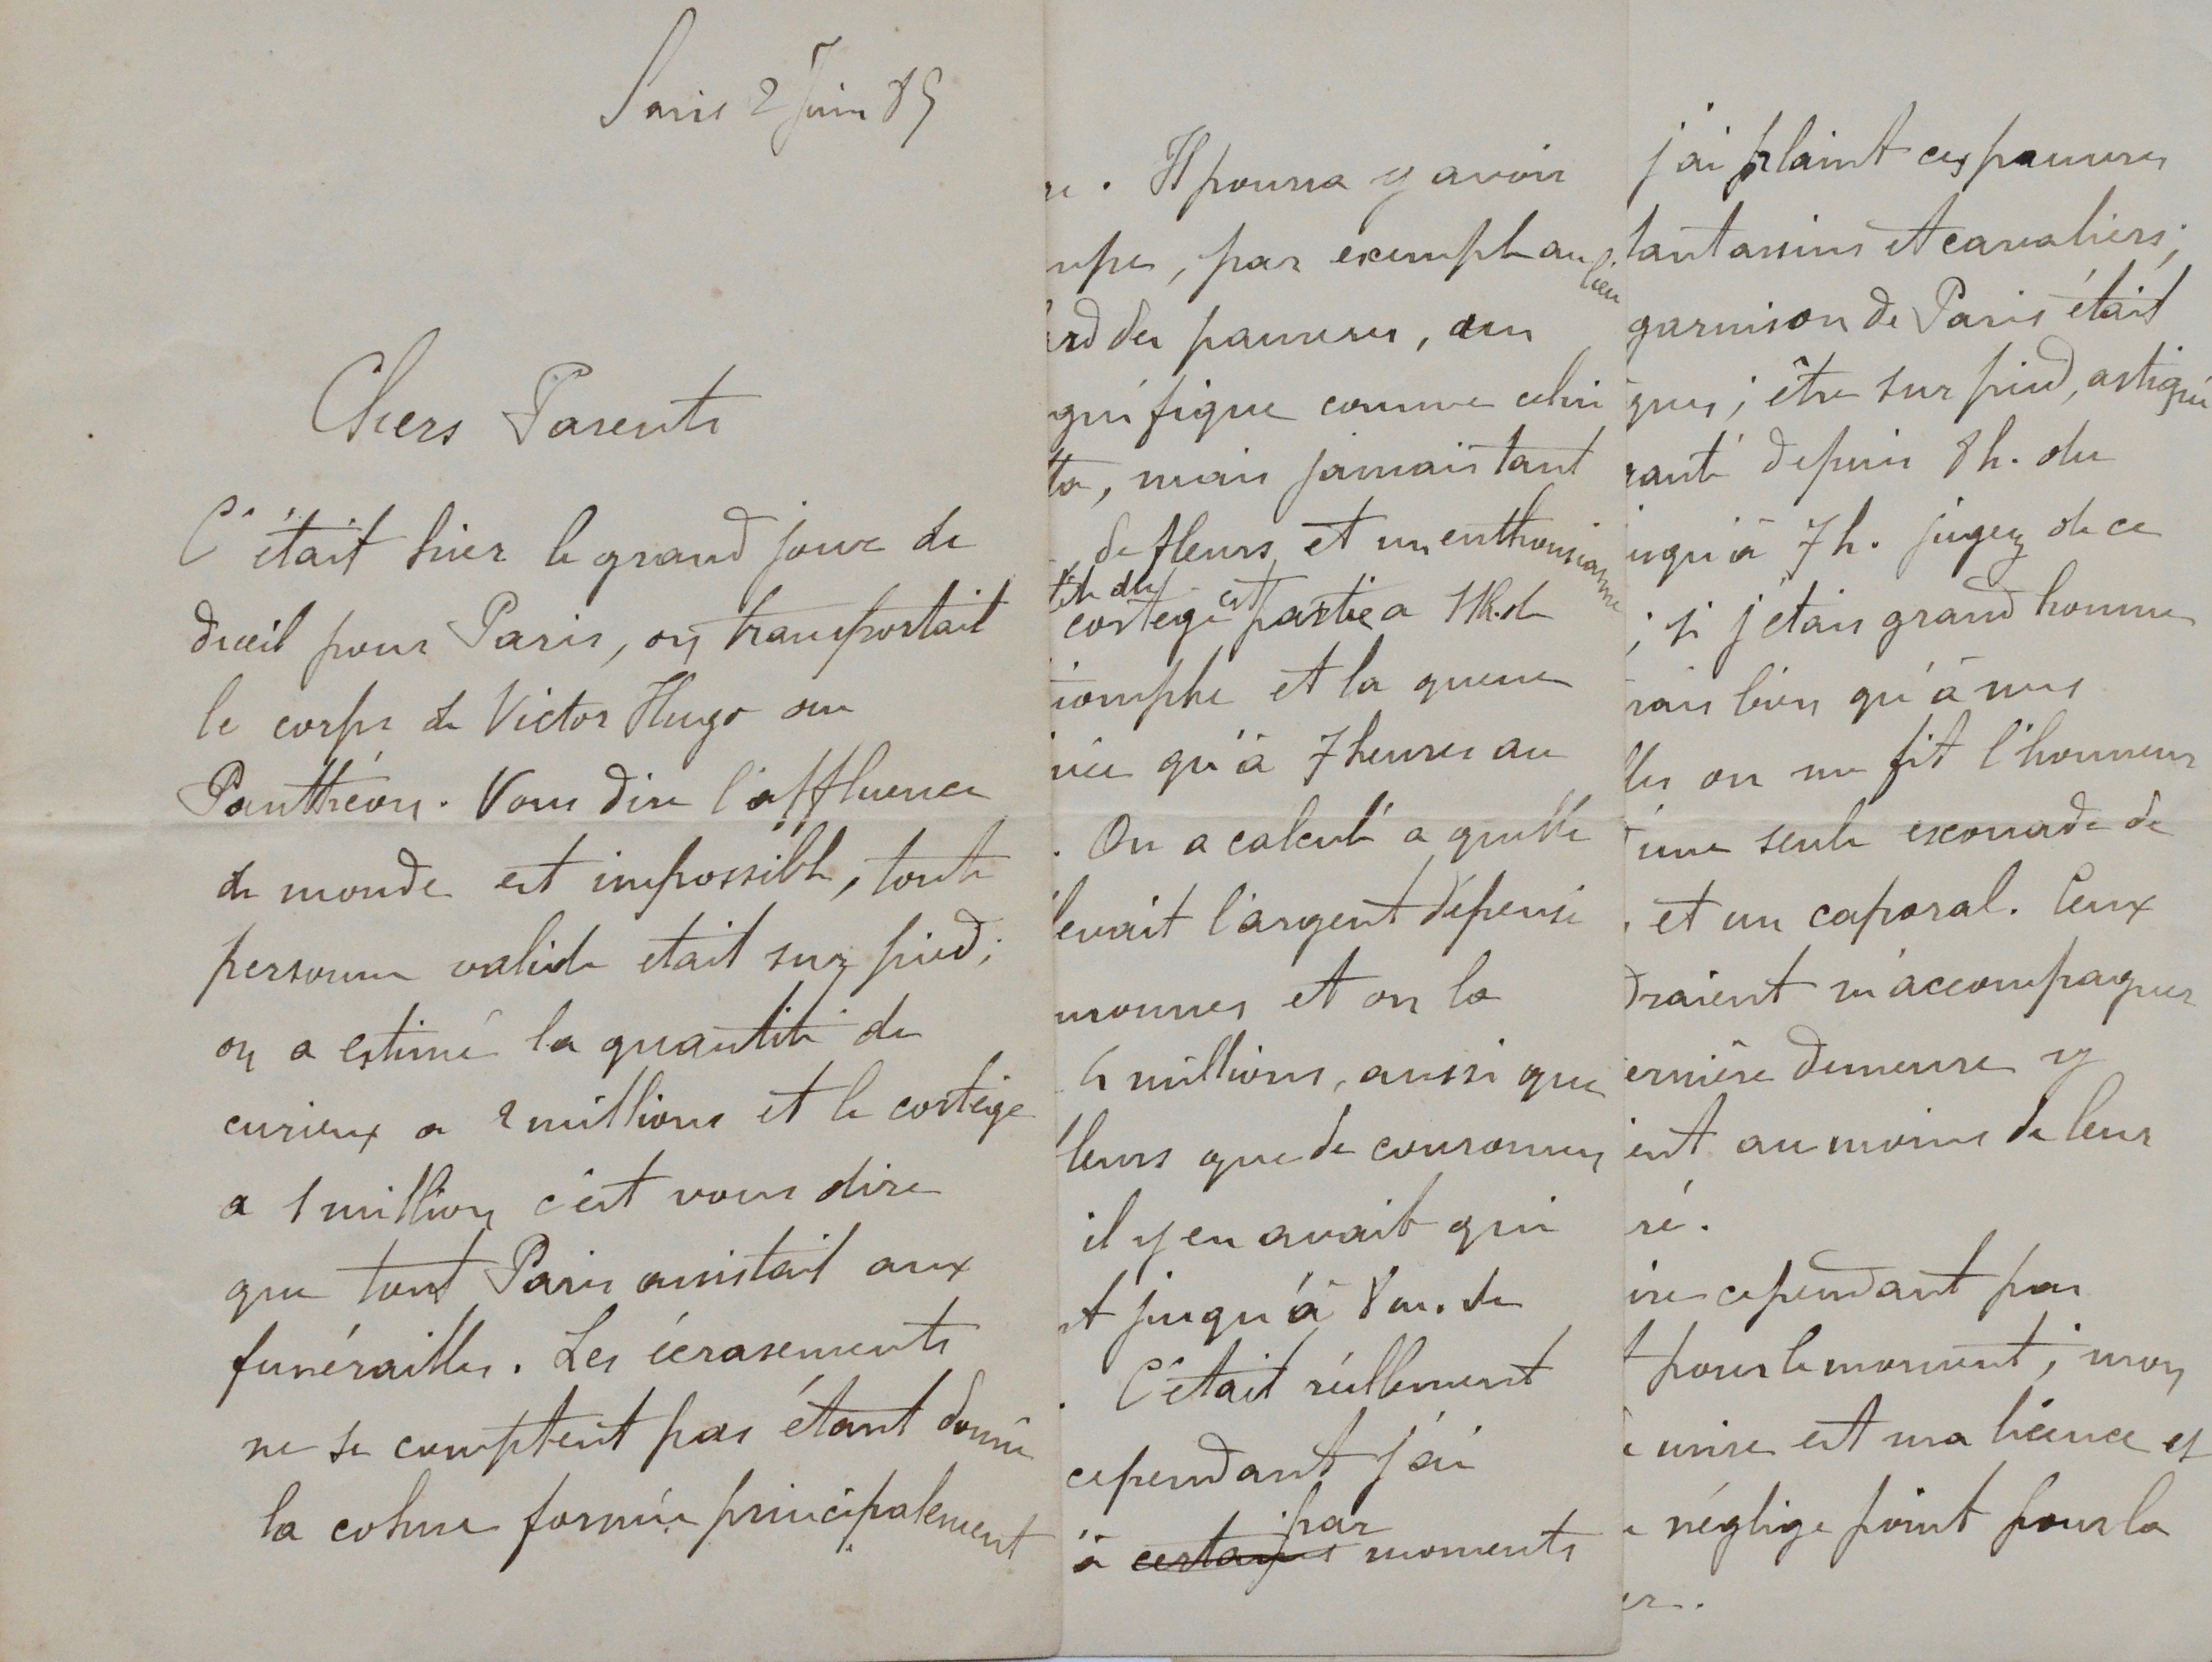 Paris 2 Juin 85
Chers Parents
C'était hier le grand jour de
deuil pour Paris, on transportait
le corps de Victor Hugo au
Panthéon. Vous dire l'affluence
de monde est impossible, toute
personne valide etait sur pied;
on a estimé la quantité de
curieux a 2 millions et le cortège
a 1 million c'est vous dire
que tout Paris assistait aux
funérailles. Les écrasements
ne se comptent pas étant donné
la cohue formée principalement
. Il pourra y avoir
, par exemple au lieu
des pauvres, un
gnifique comme celui
ta, mais jamais tant
de fleurs et un enthousiasme
tête du
cortège est partie a 11h. de
iomphe et la queue
vée qu'à 7 heures au
. On a calculé a quelle
levait l'argent dépensé
ronnes et on la
millions, aussi que
leurs que de couronnes
il y en avait qui
t jusqu'à 8 m. de
. C'était réellement
cependant j'ai
à certains par moments
j'ai plaint ces pauvres
fantassins et cavaliers;
garnison de Paris était
ques; être sur pied, astiqué
depuis 8 h. du
usqu'à 7 h. jugez de ce
; si j'étais grand homme
rais bien qu'à mes
lles on me fit l'honneur
d'une seule escouade de
et un caporal. Ceux
draient m'accompagner
ernière demeure y
ent au moins de leur
ré.
ire cependant pas
t pour le moment; mon
mire est ma licence et
néglige point pour la
er.